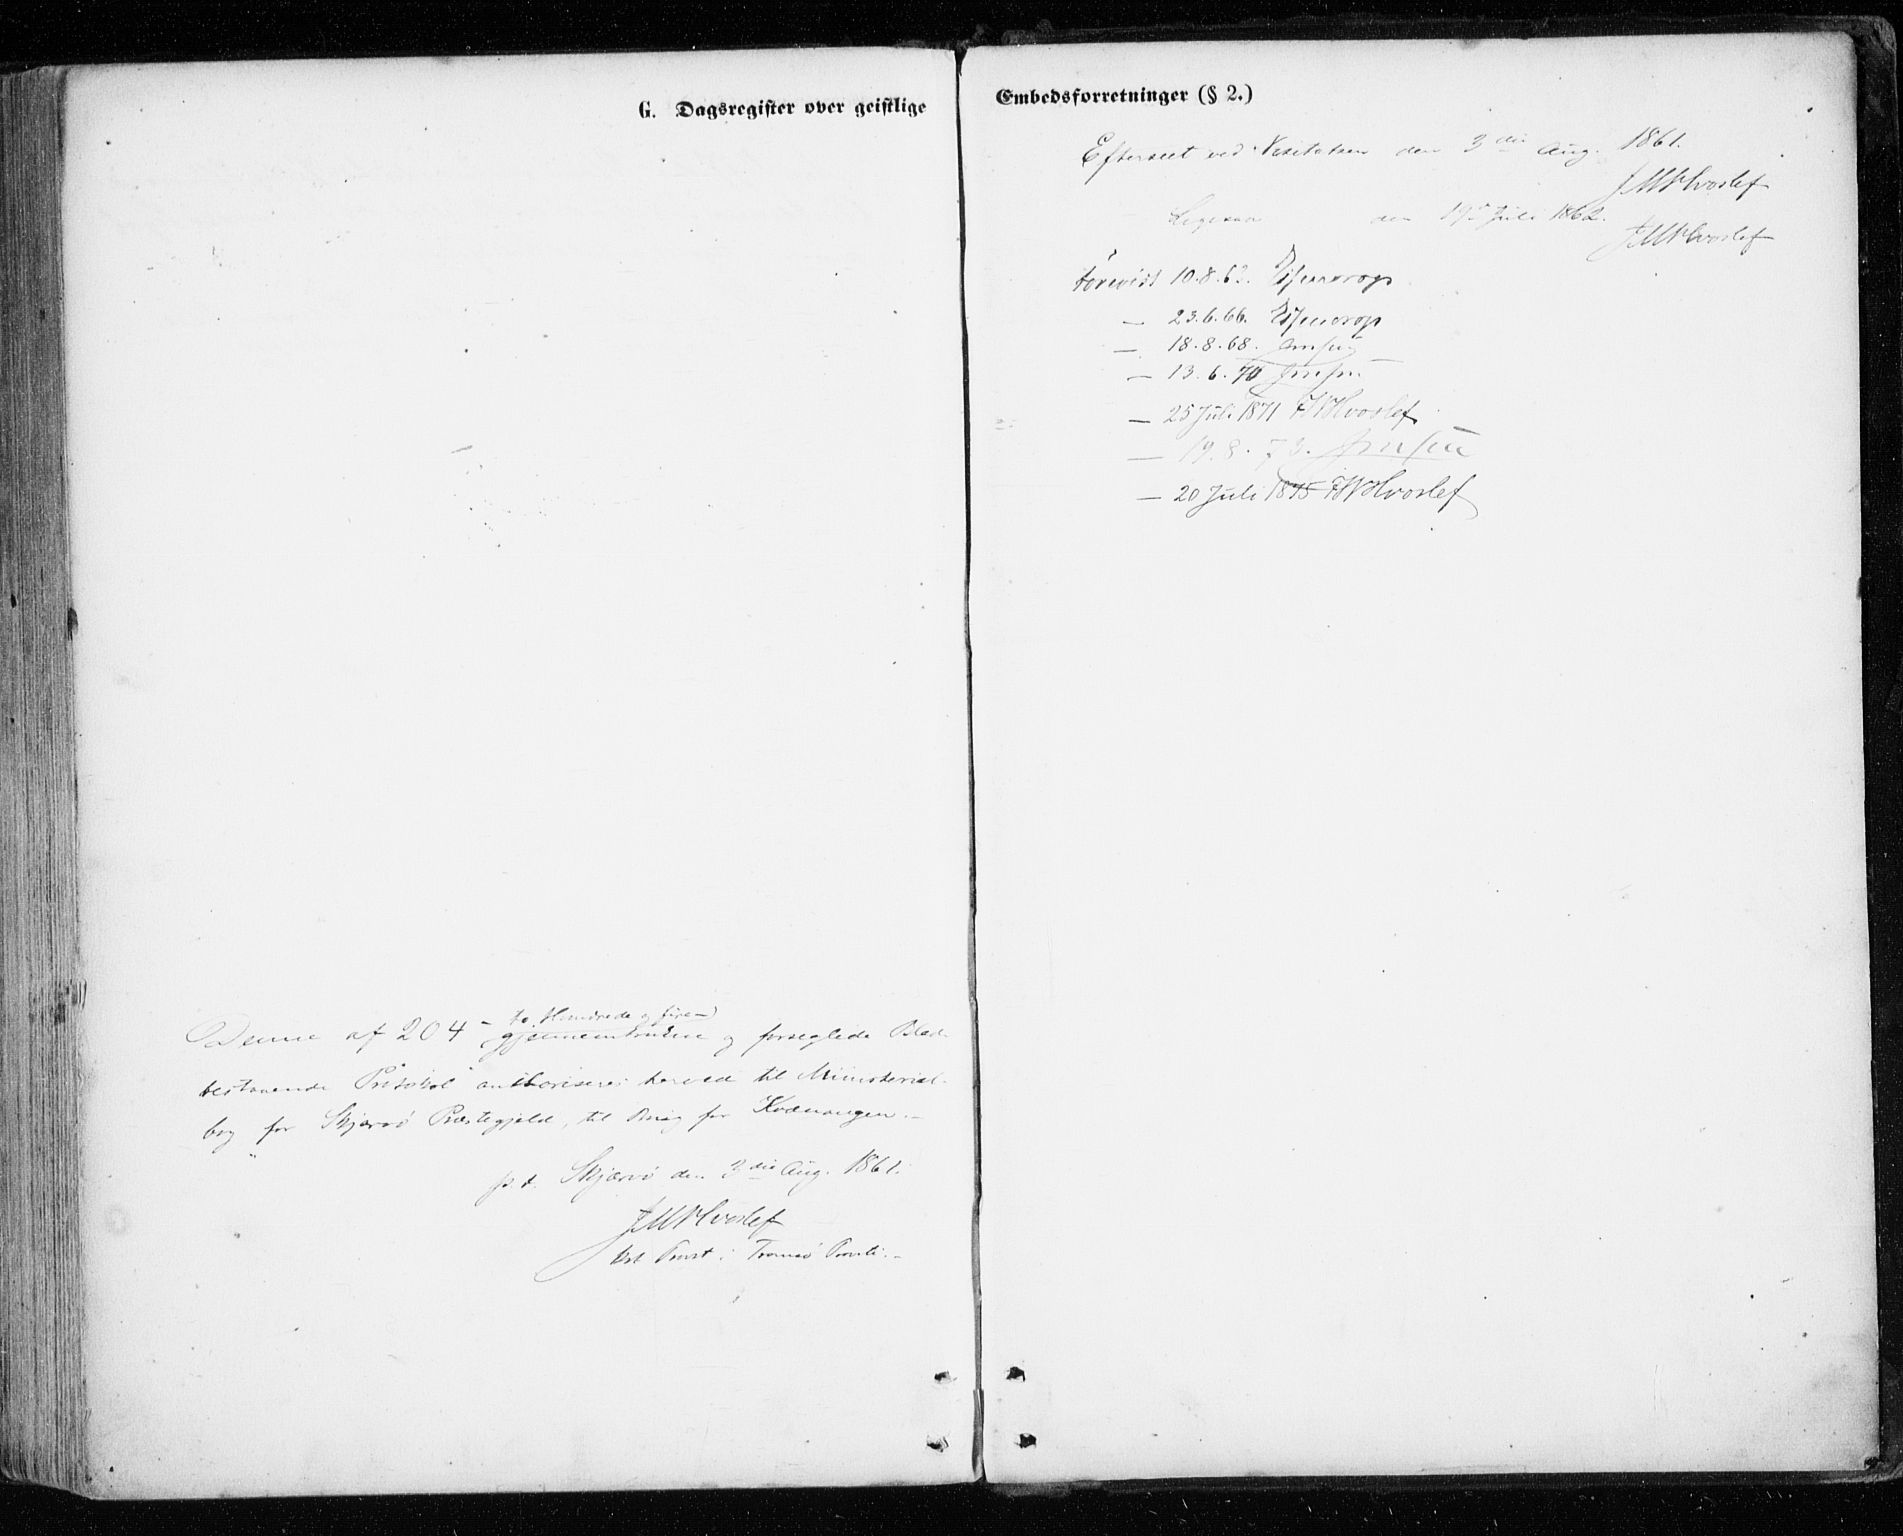 G. Dagsregister over geistlige
Denne af 204 - to Hundrede og fire -
gjennemtrukne og forseglede Blade
bestaaende Protokol authoriseres herved til Ministerial-
bog for Skjærvø Præstegjeld, til Brug for Kvænangen. -
p. t. Skjærvø den 3die Aug. 1861.
Hvoslef
Provst i Tromsø Provsti. -
Embedsforretninger (§ 2.)
Efterseet ved Visitatsen den 3die Aug. 1861.
Hvoslef
Ligesaa den Juli 1862.
Hvoslef
Forevist 10.8.62.
— 23.6.66.
— 18.8.68.
— 13.6.70
— 25 Juli 1871 Hvoslef
— 19.8.73.
— 20 Juli 1875 Hvoslef